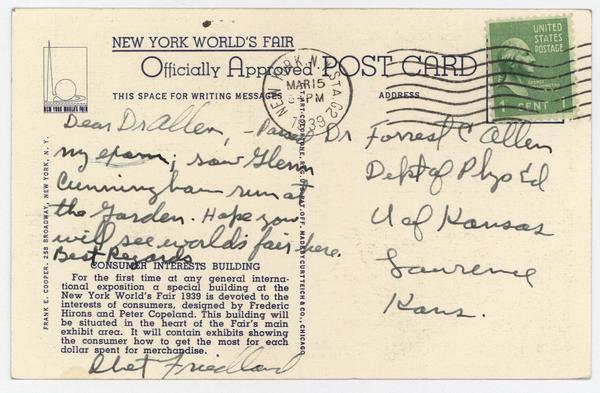 NEW YORK WORLD'S FAIR
Officially Approved POST CARD
THIS SPACE FOR WRITING MESSAGES
ADDRESS
NEW YORK WORLD'S FAIR
NEW YORK, N.Y. STA. 62
MAR 15
PM
1939
UNITED STATES POSTAGE
1 CENT 1
Dear Dr Allen, - Passed
my exam; saw Glenn
Cunningham run at
the Garden. Hope you
will see world's fair here.
Best Regards
CONSUMER INTERESTS BUILDING
For the first time at any general interna-
tional exposition a special building at the
New York World's Fair 1939 is devoted to the
interests of consumers, designed by Frederic
Hirons and Peter Copeland. This building will
be situated in the heart of the Fair's main
exhibit area. It will contain exhibits showing
the consumer how to get the most for each
dollar spent for merchandise.
Chet Friedland
Dr Forrest C Allen
Dept of Phys Ed
U of Kansas
Lawrence
Kans.
FRANK E. COOPER, 258 BROADWAY, NEW YORK, N. Y.
C.T. ART-COLORTONE REG. U.S. PAT. OFF. MADE BY CURT TEICH & CO., CHICAGO